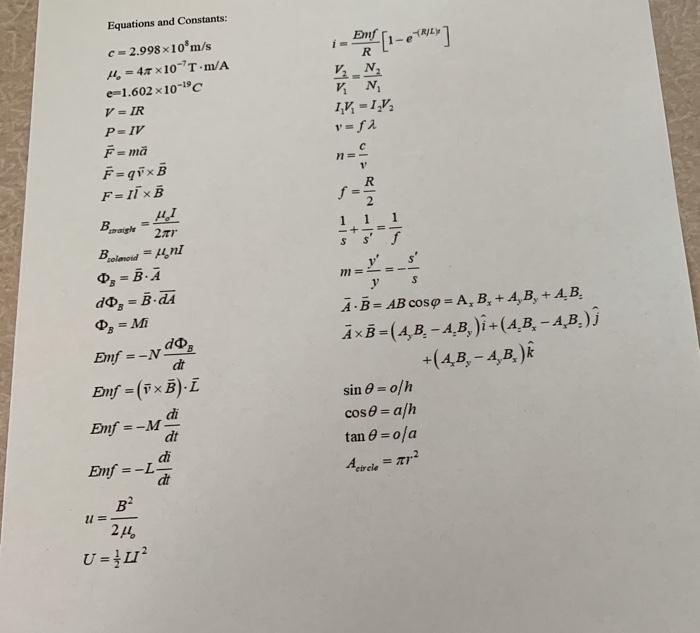 Equations and Constants:
c = 2.998×10⁸ m/s
μₒ = 4π×10⁻⁷ T·m/A
e=1.602×10⁻¹⁹ C
V = IR
P = IV
F⃗ = ma⃗
F⃗ = qv⃗ × B⃗
F = Il⃗ × B⃗
B_straight = μₒI / 2πr
B_solenoid = μₒnI
Φ_B = B⃗·A⃗
dΦ_B = B⃗·dA⃗
Φ_B = Mi
Emf = −N dΦ_B/dt
Emf = (v⃗ × B⃗)·L⃗
Emf = −M di/dt
Emf = −L di/dt
u = B² / 2μₒ
U = ½ LI²
i = Emf/R [1−e^−(R/L)t]
V₂/V₁ = N₂/N₁
I₁V₁ = I₂V₂
v = fλ
n = c/v
f = R/2
1/s + 1/s′ = 1/f
m = y′/y = −s′/s
A⃗·B⃗ = AB cosφ = AₓBₓ + A_yB_y + A_zB_z
A⃗×B⃗ = (A_yB_z − A_zB_y)î + (A_zBₓ − AₓB_z)ĵ
+(AₓB_y − A_yBₓ)k̂
sin θ = o/h
cos θ = a/h
tan θ = o/a
A_circle = πr²